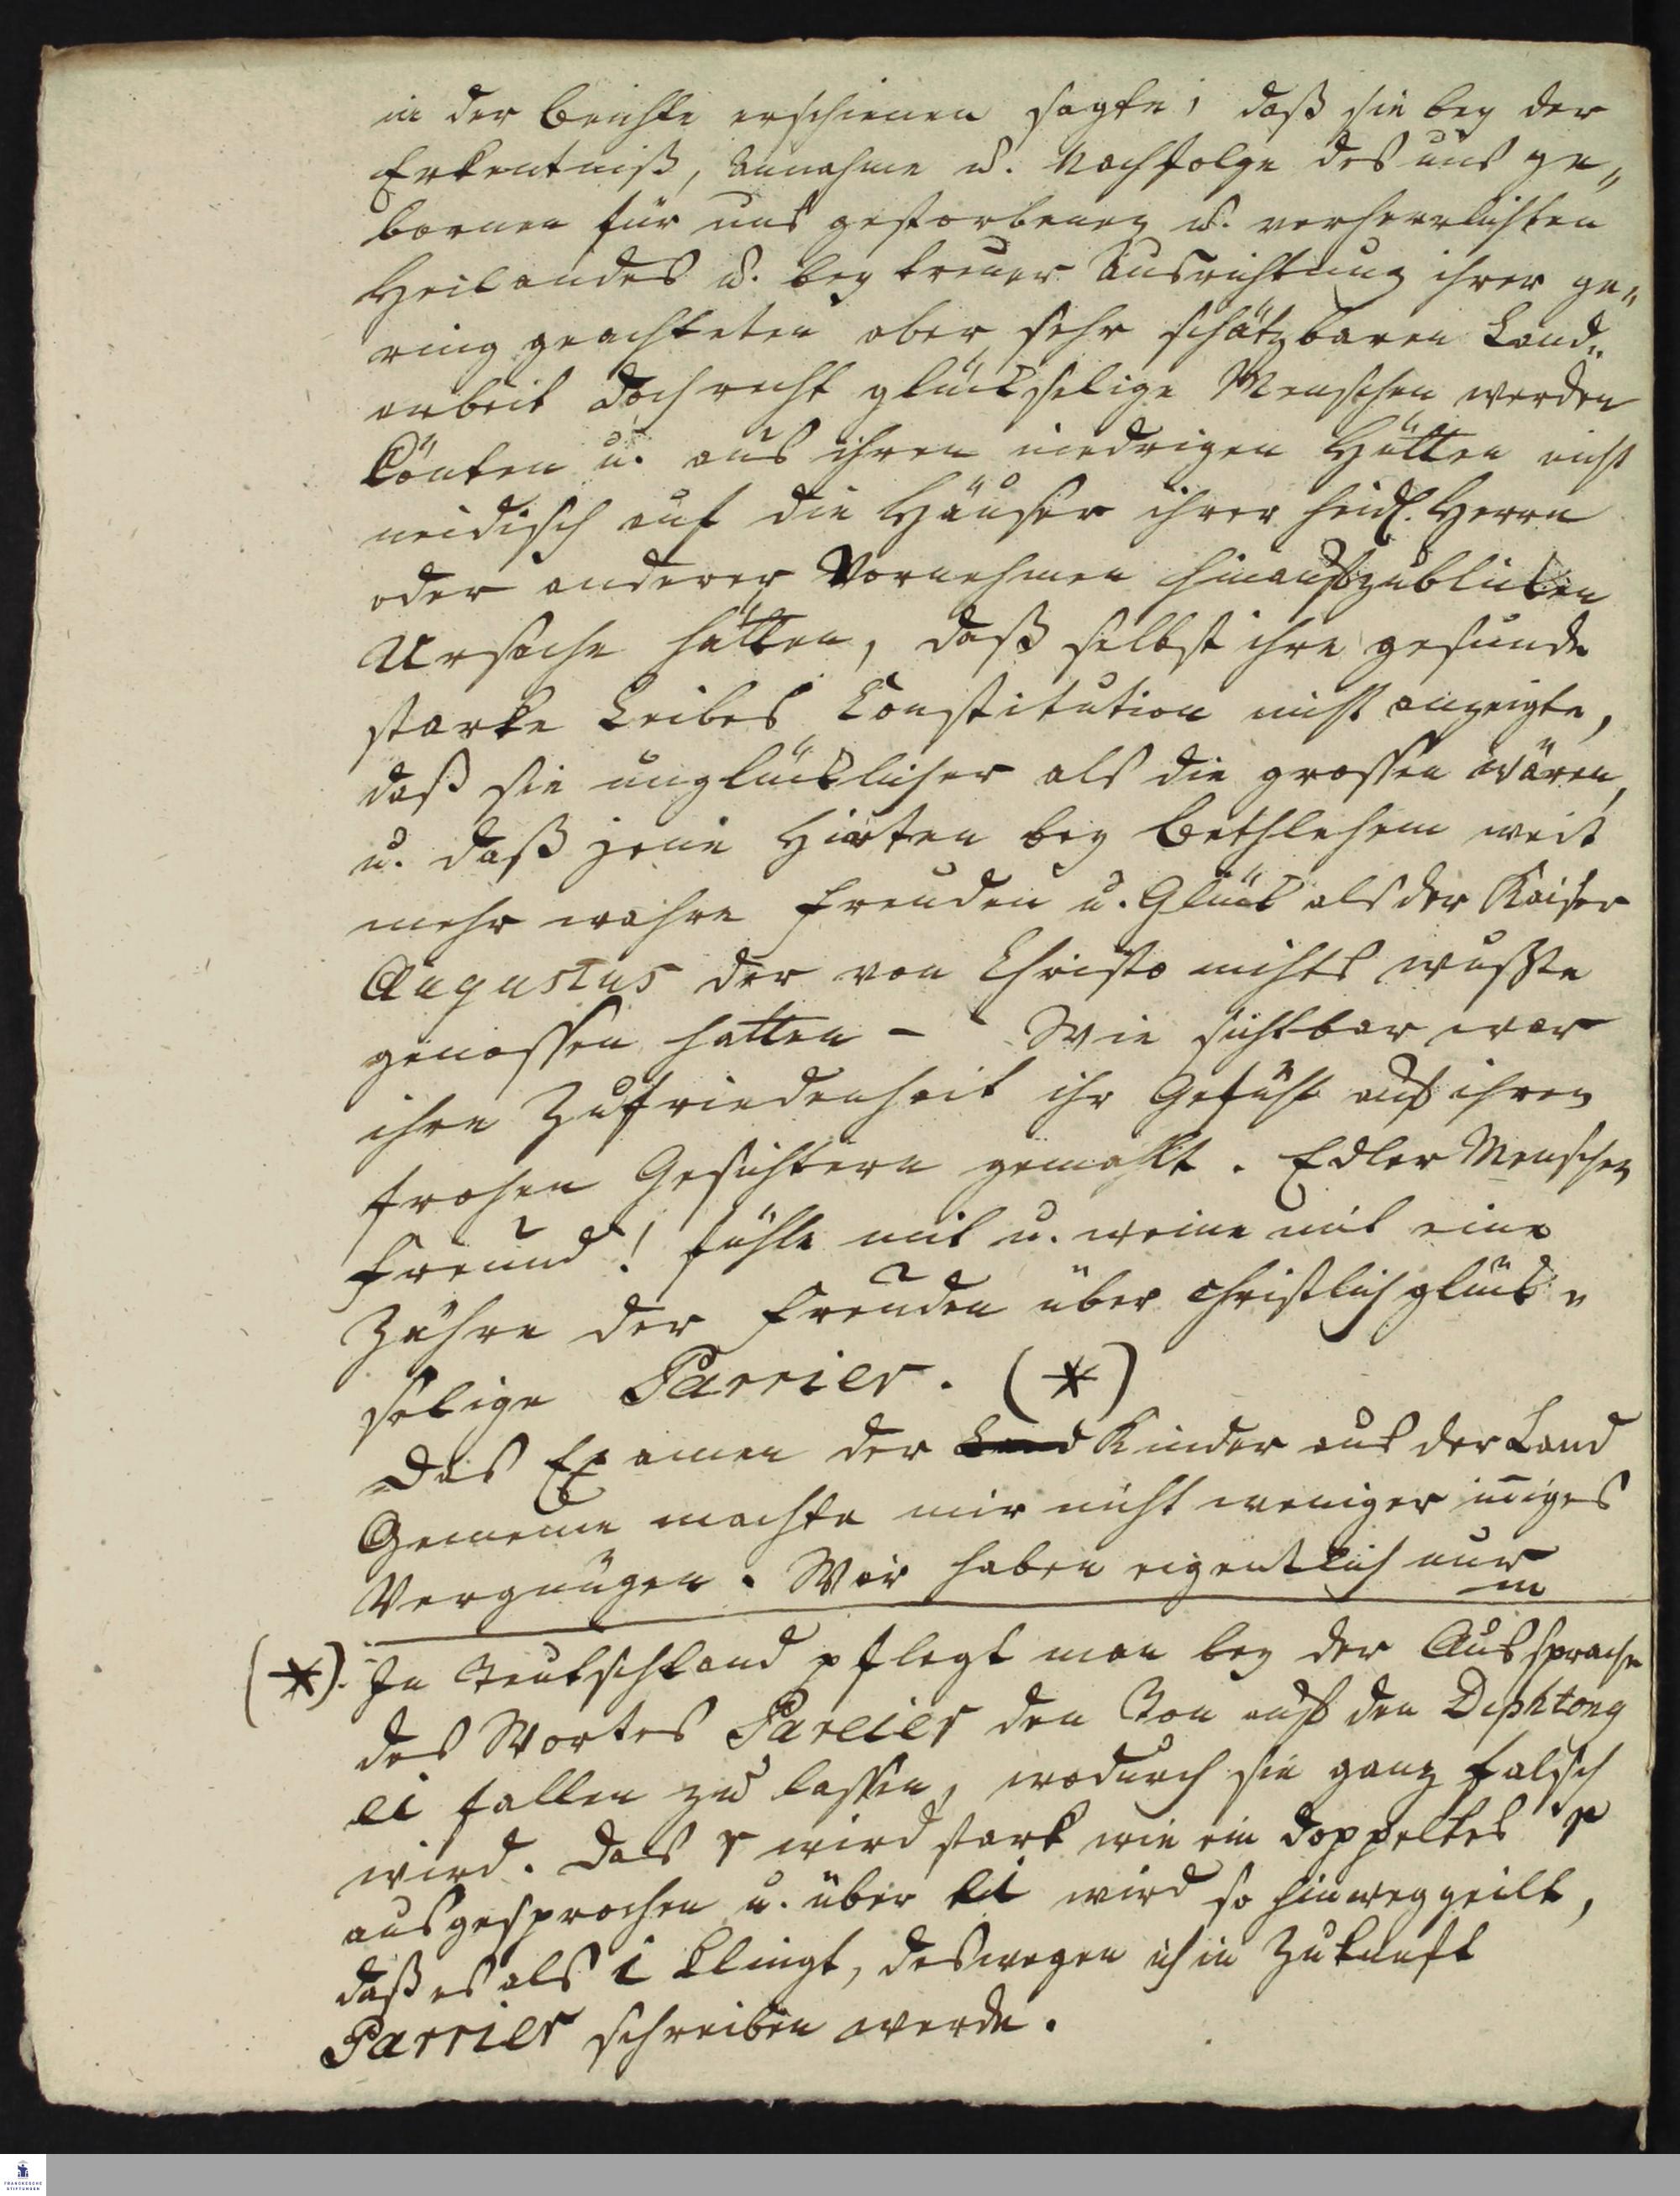 in der Beichte erschienen sagte, daß sie bey der
Erkentniß, Annahme u. Nachfolge des uns ge„
bornen für uns gestorbenen u. verherrlichten
Heilandes u. bey treuer Ausrichtung ihrer ge„
ring geachteten aber sehr schätzbaren Land„
arbeit doch recht glückselige Menschen werden
könten u. aus ihren niedrigen Hütten nicht
neidisch auf die Häuser ihrer heidn. Herrn
oder anderer Vornehmen hinaufzublicken
Ursache hätten, daß selbst ihre gesunde
starke Leibes Constitution nicht anzeigte,
daß sie unglücklicher als die grossen wären,
u. daß jene Hirten bey Bethlehem weit
mehr wahre Freuden u. Glück als der Kaiser
Augustus der von Christo nichts wußte
genossen hatten - Wie sichtbar war
ihre Zufriedenheit ihr Gefühl auf ihren
frohen Gesichtern gemahlt. Edler Menschen
freund! fühle mit u. weine mit eine
Zähre der Freuden über christlich glück„
selige Parrier. (*)
Das Examen der Land Kinder aus der Land
Gemeine machte mir nicht weniger iniges
Vergnügen. Wir haben eigentlich nur
in
(*). In Teutschland pflegt man bey der Aussprache
des Wortes Pareier den Ton auf den Diphtong
ei fallen zu lassen, wodurch sie ganz falsch
wird. Das r wird stark wie ein doppeltes r
ausgesprochen u. über ei wird so hinweggeilt,
daß es als i klingt, deswegen ich in Zukunft
Parrier schreiben werde.
FRANCKESCHE
STIFTUNGEN